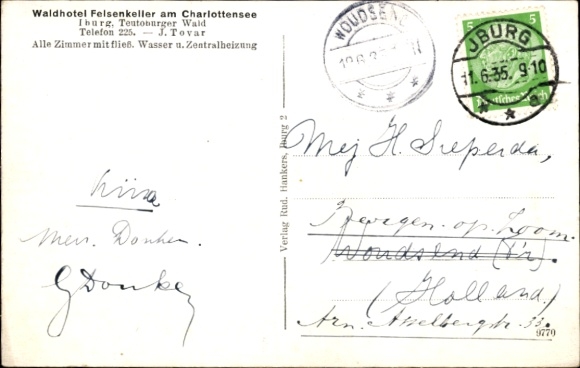 Waldhotel Felsenkeller am Charlottensee
Iburg, Teutoburger Wald
Telefon 225. — J. Tovar
Alle Zimmer mit fließ. Wasser u. Zentralheizung
WOUDSEND
JBURG
11.6.35. 9-10
* * a
5 5
Deutsches Reich
Mej H. Sieperda,
Bergen. op. Zoom.
Woudsend (Fr).
(Holland.)
Arn. Asselbergstr. 33.
9770
Verlag Rud. Hankers, Iburg 2
Mevr. Donker.
G Donker